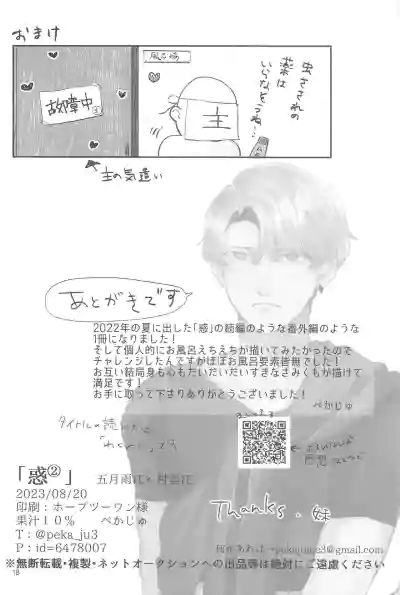 おまけ
故障中
風呂場
主
虫さされの
薬は
いらなそうね…
主の気遣い
あとがきです
2022年の夏に出した「惑」の続編のような番外編のような
1冊になりました!
そして個人的にお風呂えちえちが描いてみたかったので
チャレンジしたんですがほぼお風呂要素皆無でした!
お互い結局身も心もだいだいだいすきなさみくもが描けて
満足です!
お手に取って下さりありがとうございました!
ぺかじゅ
タイトルの読み
です
「惑②」
五月雨江×村雲江
2023/08/20
印刷:ホープツーワン様
果汁10% ぺかじゅ
T:@peka_ju3
P:id=6478007
Thanks. 妹
@gmail.com
※無断転載・複製・ネットオークションへの出品等は絶対にご遠慮ください
18